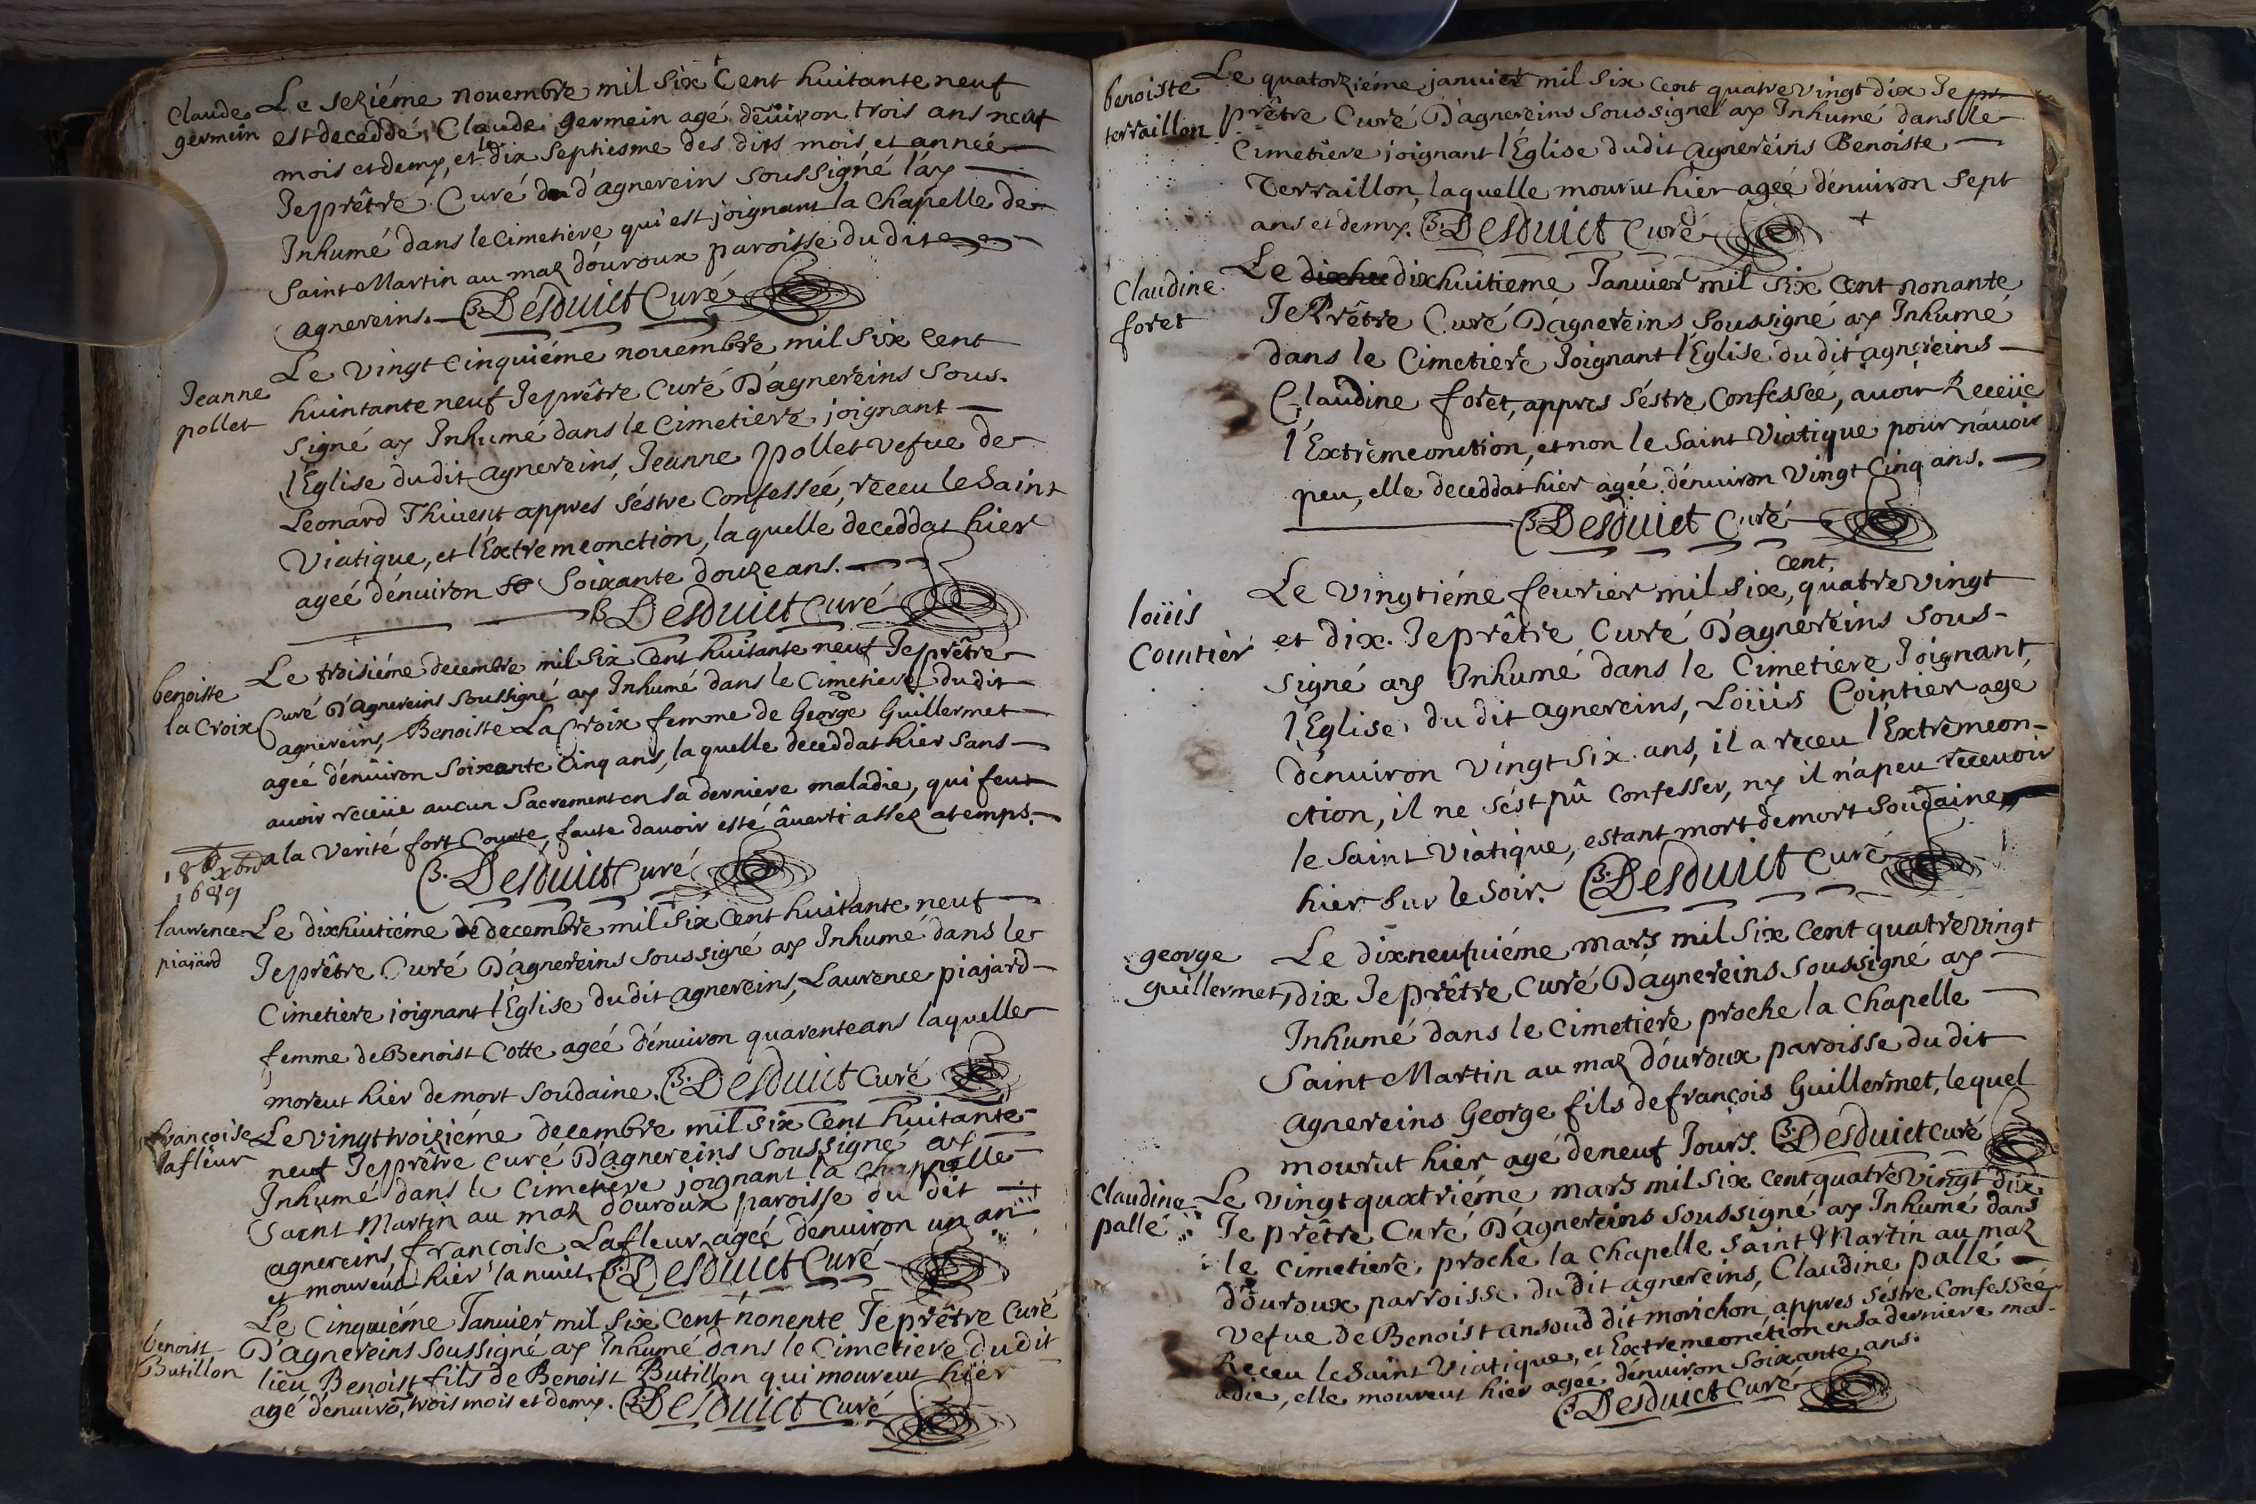 Claude
germein
Le seziéme novembre mil six Cent huitante neuf
est deceddé, Claude germein agé dénuiron trois ans neuf
mois et demy, et le dix septiesme des dits mois et année
Je prêtre Curé d'agnereins soussigné l'ay
Inhumé dans le Cimetiere qui est joignant la Chapelle de
Saint Martin au maz d'ouroux paroisse du dit
agnereins. B. Desduict Curé
Jeanne
pollet
Le vingt cinquiéme novembre mil six cent
huintante neuf Je prêtre Curé D'agnereins sous-
signé ay Inhumé dans le Cimetiere joignant
l'Eglise du dit agnereins, Jeanne pollet vefue de
Leonard Thivent appres s'éstre Confesseé, receu le Saint
Viatique, et l'Extremeonction, laquelle deceddat hier
ageé dénuiron so soixante douze ans.
B Desduict Curé
benoiste
la Croix
Le troisiéme decembre mil six Cent huitante neuf Je prêtre
Curé D'agnereins soussigné ay Inhumé dans le Cimetiere du dit
agnereins, Benoiste La Croix femme de George Guillermet
ageé dénuiron soixante Cinq ans, la quelle deceddat hier sans
auoir receüe aucun Sacrement en sa derniere maladie, qui feut
a la verité fort Courte, faute davoir esté âuerti assez a temps.
B. Desduict Curé
18 xbre
1689
laurence
piajard
Le dixhuitiéme de decembre mil six Cent huitante neuf
Je prêtre Curé D'agnereins soussigné ay Inhumé dans le
Cimetiere joignant l'Eglise du dit agnereins, Laurence piajard
femme de Benoist Cotte ageé dénuiron quarente ans laquelle
moreut hier de mort soudaine. B. Desduict Curé
françoise
lafleur
Le vingt troiziéme decembre mil six Cent huitante
neuf Je prêtre curé D'agnereins soussigné ay
Inhumé dans le Cimetiere joignant la Chappelle
Saint Martin au maz d'ouroux paroisse du dit
agnereins, françoise Lafleur ageé dénuiron un an
et moureut hier la nuit. B. Desduict Curé
benoist
Butillon
Le Cinquiéme Janvier mil six Cent nonente Je prêtre Curé
D'agnereins soussigné ay Inhumé dans le Cimetiere du dit
lieu Benoist fils de Benoist Butillon qui moureut hier
agé dénuirõ trois mois et demy. B. Desduict Curé
benoiste
terraillon
Le quatorziéme janvier mil six Cent quatre vingt dix Je pr
prêtre Curé D'agnereins soussigné ay Inhumé dans le
Cimetiere joignant l'Eglise du dit agnereins Benoiste
Terraillon, laquelle mourut hier ageé dénuiron sept
ans et demy. B. Desduict Curé
Claudine
foret
Le dixhu dixhuitieme Janvier mil six Cent nonante
Je Prêtre Curé D'agnereins soussigné ay Inhumé
dans le Cimetiere Joignant l'Eglise du dit agnereins
Claudine foret, appres s'éstre Confesseé, auoir Receüe
l'Extremeonction, et non le Saint Viatique pour n'auoir
peu, elle deceddat hier ageé dénuiron vingt Cinq ans.
B. Desduict Curé
loüis
Cointier
Le vingtiéme feurier mil six cent, quatre vingt
et dix. Je prêtre Curé D'agnereins sous-
signé ay Inhumé dans le Cimetiere Joignant
l'Eglise, du dit agnereins, Loüis Cointier agé
dénuiron vingt six ans, il a receu l'Extremeon-
ction, il ne s'ést pû Confesser, ny il n'a peu receuoir
le Saint Viatique, estant mort de mort soudaine
hier sur le soir. B. Desduict Curé
george
guillermet
Le dixneufuiéme mars mil six Cent quatre vingt
dix Je prêtre Curé D'agnereins soussigné ay
Inhumé dans le Cimetiere proche la Chapelle
Saint Martin au maz d'ouroux paroisse du dit
agnereins George fils de françois Guillermet, lequel
mourut hier agé de neuf Jours. B. Desduict curé
Claudine
pallé
Le vingt quatriéme mars mil six Cent quatre vingt dix
Je prêtre Curé D'agnereins soussigné ay Inhumé dans
le Cimetiere proche la Chapelle Saint Martin au maz
d'ouroux parroisse du dit agnereins, Claudine pallé
vefue de Benoist ansoud dit morichon appres s'éstre Confesseé
Receu le Saint Viatique, et Extremeonction en sa derniere ma-
adie, elle moureut hier ageé dénuiron soixante ans.
B Desduict Curé